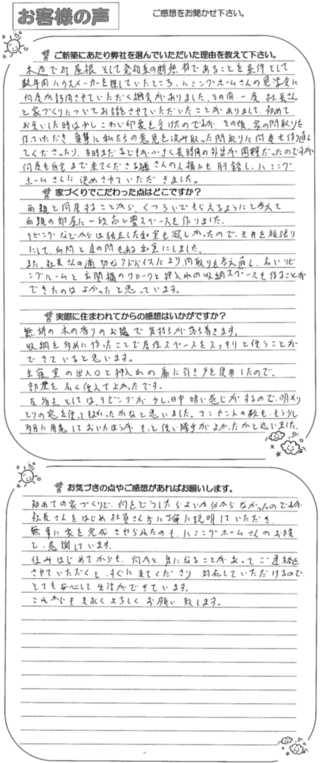 お客様の声
ご感想をお聞かせ下さい。
ご新築にあたり弊社を選んでいただいた理由を教えて下さい。
木造で瓦屋根、そして発泡系の断熱材であることを条件として
数年間ハウスメーカーを探していたところ、ハミングホームさんの見学会に
何度か訪問させていただく機会がありました。その間一度社長さん
と家づくりについてお話させていただいたことがありまして、初めて
お会いした時はやさしいお印象を受けたのですが、その後、家の間取りを
作っていただき、真摯に私たちの意見を汲み取った間取りに何度も作り直し
てくださったり、当時まだ子どもが小さく長時間の外出が困難だったのですが
何度も自宅まで来てくださる
ホームさんに決めさせていただきました。
家づくりでこだわった点はどこですか？
両親と同居することから、くつろいでもらえるようにと考えて
両親の部屋に一段高い畳スペースを作りました。
リビングなどからは独立した和室も欲しかったので、天井を板張り
にして、仏間と床の間もある和室にしました。
また、社長さんの適切なアドバイスにより間取りを考え直し、広いリビ
ングルームと玄関横のクロークと押入れの収納スペースを作ることが
できたのはよかったと思っています。
実際に住まわれてからの感想はいかがですか？
無垢の木の香りのお陰で気持ちが落ち着きます。
収納を多めに作ったことで居住スペースをスッキリと使うことが
できていると思います。
主寝室の出入口と押入れの扉に引き戸を使用したので、
部屋を広く使えてよかったです。
反省点としては、リビングが少し日中暗い感じがするので、明かり
とりの窓を使えばよかったかなと思いました。コンセントの数も、もう少し
多目に用意しておいたほうがもっと使い勝手がよかったかと思いました。
お気づきの点やご感想があればお願いします。
初めての家づくりで、何をどうしたらよいか分からなかったのですが、
社長さんをはじめ社員さん方に丁寧に説明していただき、
無事に家を完成させられたのも、ハミングホームさんのお陰
と、感謝しています。
住みはじめてからも、何かと気になることがあってご連絡
させていただくと、すぐに来てくださり対応していただけるので
とても安心して生活ができています。
これからも末永くよろしくお願い致します。